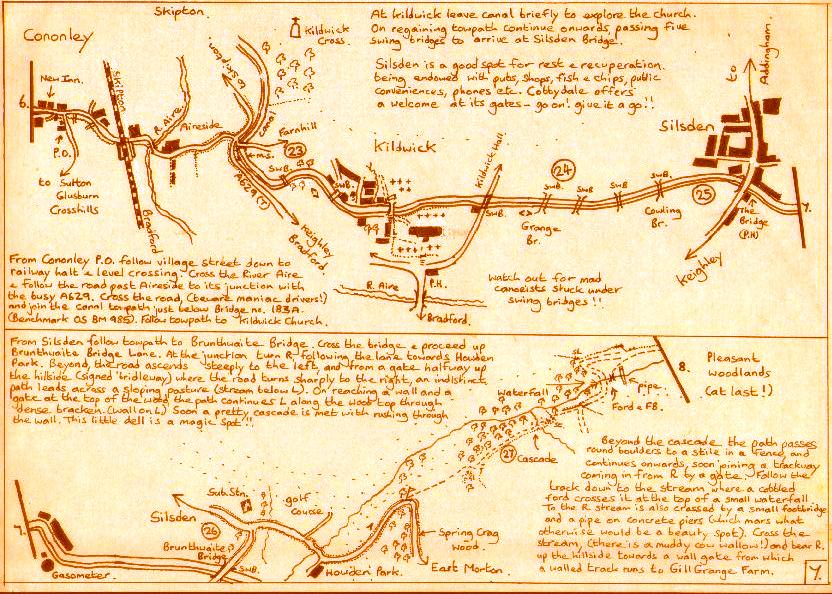 Skipton
Cononley
Kildwick
Cross.
At Kildwick leave canal briefly to explore the church.
On regaining towpath continue onwards, passing five
swing bridges to arrive at Silsden Bridge.
Silsden is a good spot for rest & recuperation.
being endowed with pubs, shops, fish & chips, public
conveniences, phones etc. Cottydale offers
a welcome at its gates – go on! give it a go!!
to
Addingham.
New Inn.
Skipton
Skipton
6.
R. Aire
Aireside
canal
Farnhill
23
m.s.
P.O.
SwB.
SwB.
Kildwick
Kildwick Hall
Silsden
24
SwB. SwB. SwB.
25
to Sutton
Glusburn
Crosshills
Bradford
A629 (T)
Keighley
Bradford.
SwB.
Grange
Br.
Cowling
Br.
The
Bridge
(P.H)
7.
Keighley
R. Aire
P.H.
Bradford.
Watch out for mad
canoeists stuck under
swing bridges!!
From Cononley P.O. follow village street down to
railway halt & level crossing. Cross the River Aire
& follow the road past Aireside to its junction with
the busy A629. Cross the road, (beware maniac drivers!)
and join the canal towpath just below Bridge no. 183A.
(Benchmark OS BM 985). Follow towpath to Kildwick Church.
From Silsden follow towpath to Brunthwaite Bridge. Cross the bridge & proceed up
Brunthwaite Bridge Lane. At the junction turn R. following the lane towards Howden
Park. Beyond, the road ascends steeply to the left, and from a gate halfway up
the hillside (signed 'bridleway') where the road turns sharply to the right, an indistinct
path leads across a sloping pasture (stream below L). On reaching a wall and a
gate at the top of the wood the path continues L along the wood top through
dense bracken. (wall on L) Soon a pretty cascade is met with rushing through
the wall. This little dell is a magic spot!!
8.
Pleasant
woodlands
(at last!)
Waterfall
pipe
Ford & F.B.
27
Cascade
Beyond the cascade the path passes
round boulders to a stile in a fence, and
continues onwards, soon joining a trackway
coming in from R by a gate. Follow the
track down to the stream where a cobbled
ford crosses it at the top of a small waterfall
To the R stream is also crossed by a small footbridge
and a pipe on concrete piers (which mars what
otherwise would be a beauty spot). Cross the
stream, (there is a muddy cow wallow!) and bear R.
up the hillside towards a wall gate from which
a walled track runs to Gill Grange Farm.
Sub Stn.
golf
course
Silsden
26
7.
Brunthwaite
Bridge
SwB.
Gasometer.
Howden Park.
Spring Crag
Wood.
East Morton
7.